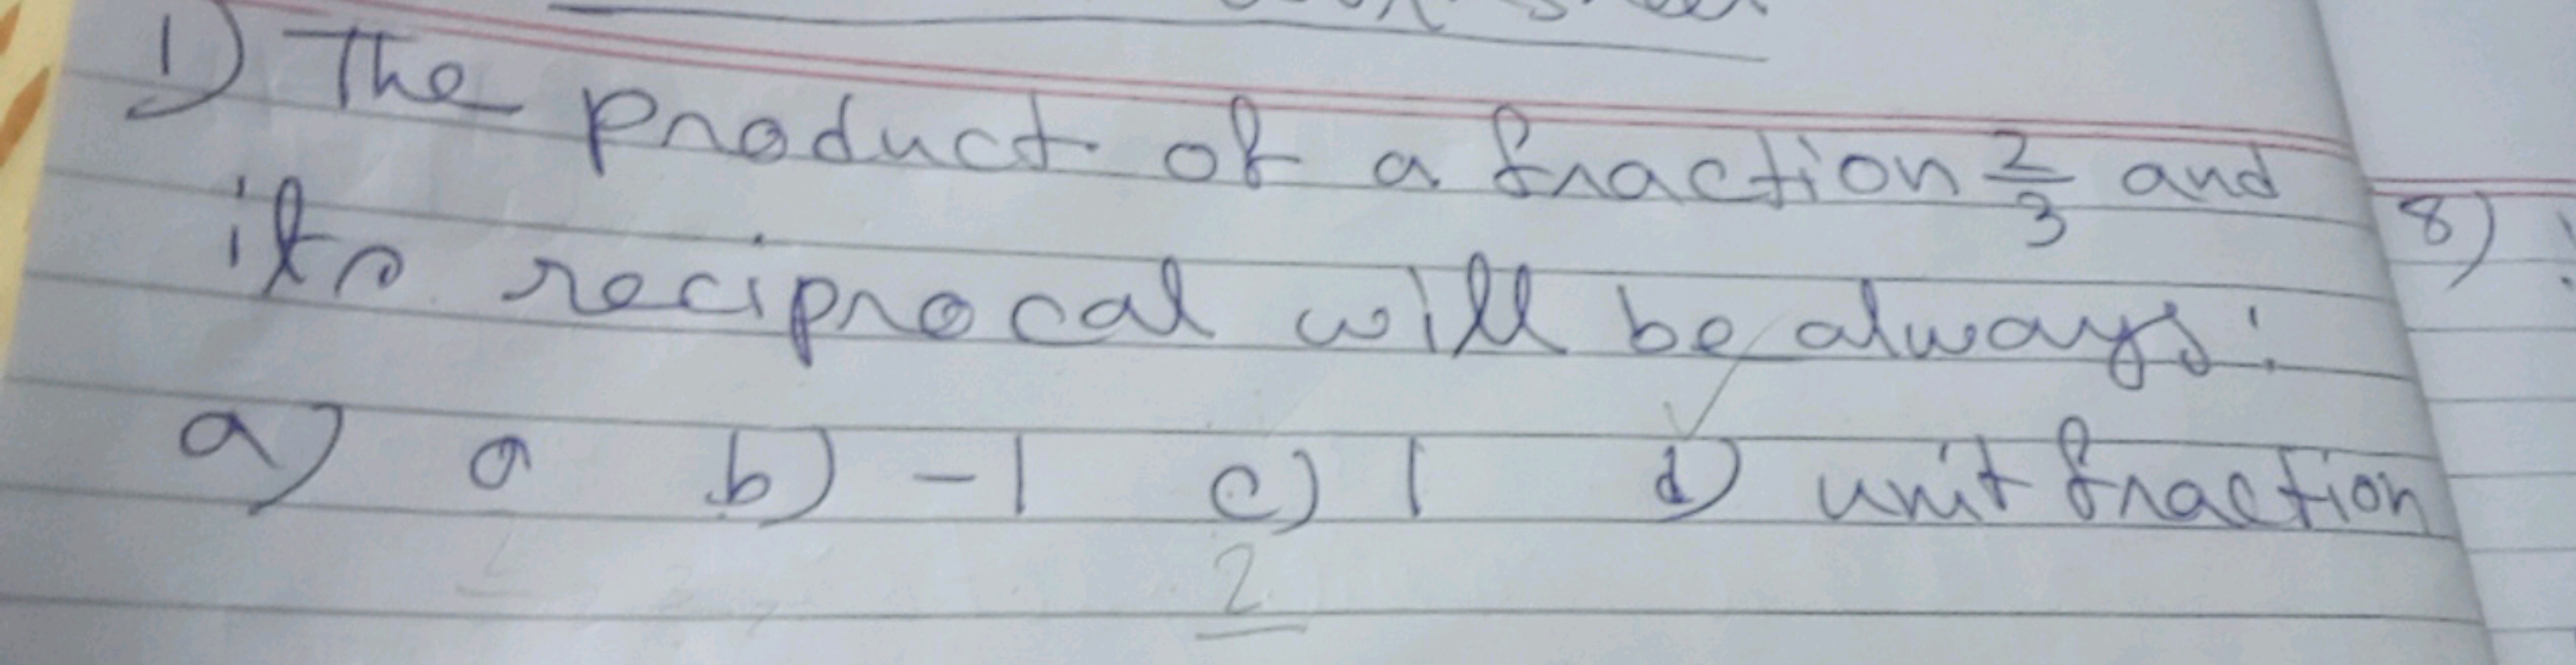 1) The product of a fraction 2/3 and
its reciprocal will be always:
a) 0 b) -1 c) 1 d) unit fraction
2
8)